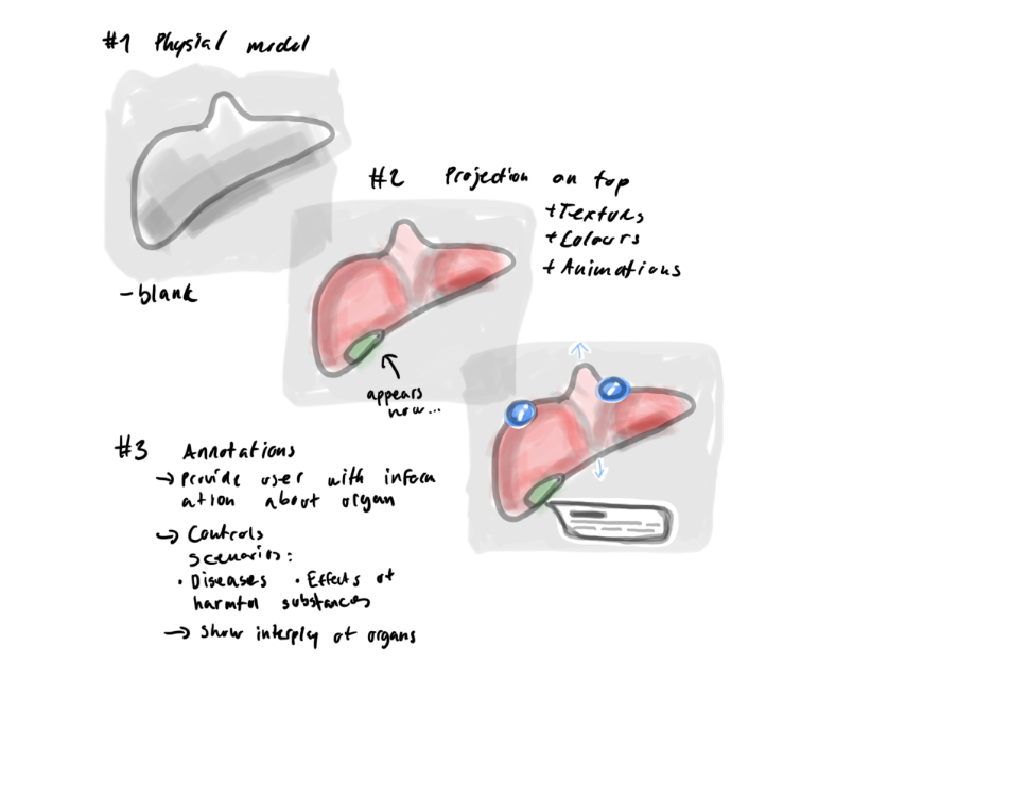 #1 Physial model
-blank
#2 Projection on top
+Texturs
+Colours
+Animations
appears
now...
#3 Annotations
→ provide user with inform
ation about organ
→ Controls
scenarios:
• Diseases • Effects of
harmful substances
→ show interply of organs
i
i